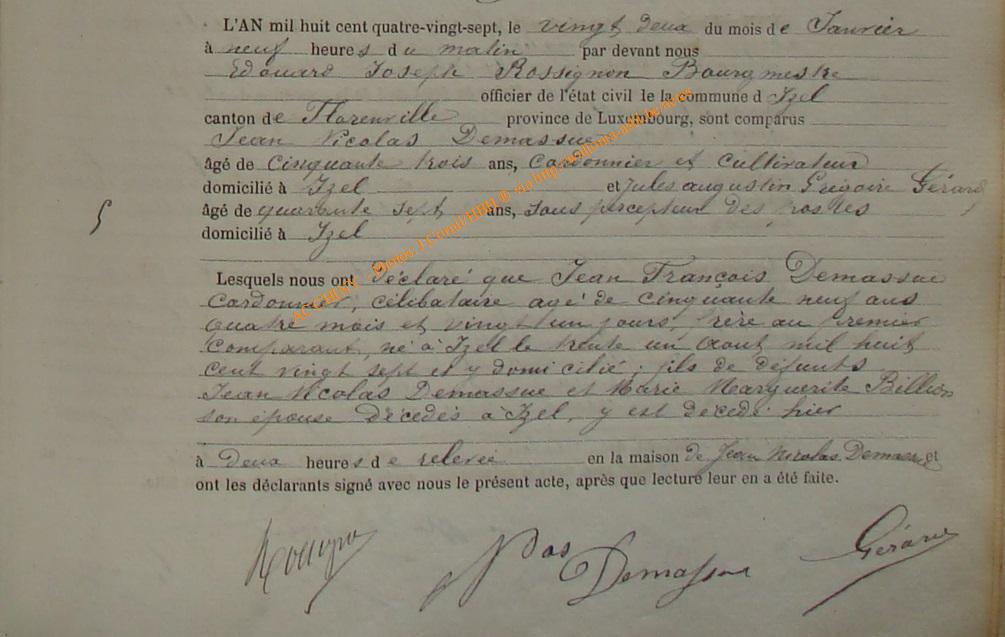 L'AN mil huit cent quatre-vingt-sept, le vingt deux du mois de Janvier
à neuf heures du matin par devant nous
Edouard Joseph Rossignon Bourgmestre
officier de l'état civil le la commune d Izel
canton de Florenville province de Luxembourg, sont comparus
Jean Nicolas Demassue
âgé de cinquante trois ans, cordonnier et cultivateur
domicilié à Izel et Jules augustin Grégoire Gérard
5
âgé de quarante sept ans, sous percepteur des postes
domicilié à Izel
Lesquels nous ont déclaré que Jean François Demassue
Cordonnier, célibataire agé de cinquante neuf ans
quatre mois et vingt un jours, frère au premier
Comparant, né à Izel le trente un aout mil huit
cent vingt sept et y domicilié; fils de défunts
Jean Nicolas Demassue et Marie Marguerite Billion
son épouse décédés à Izel, y est décédé hier
à deux heures de relevée en la maison de Jean Nicolas Demassue et
ont les déclarants signé avec nous le présent acte, après que lecture leur en a été faite.
Ndas Demassue Gérard